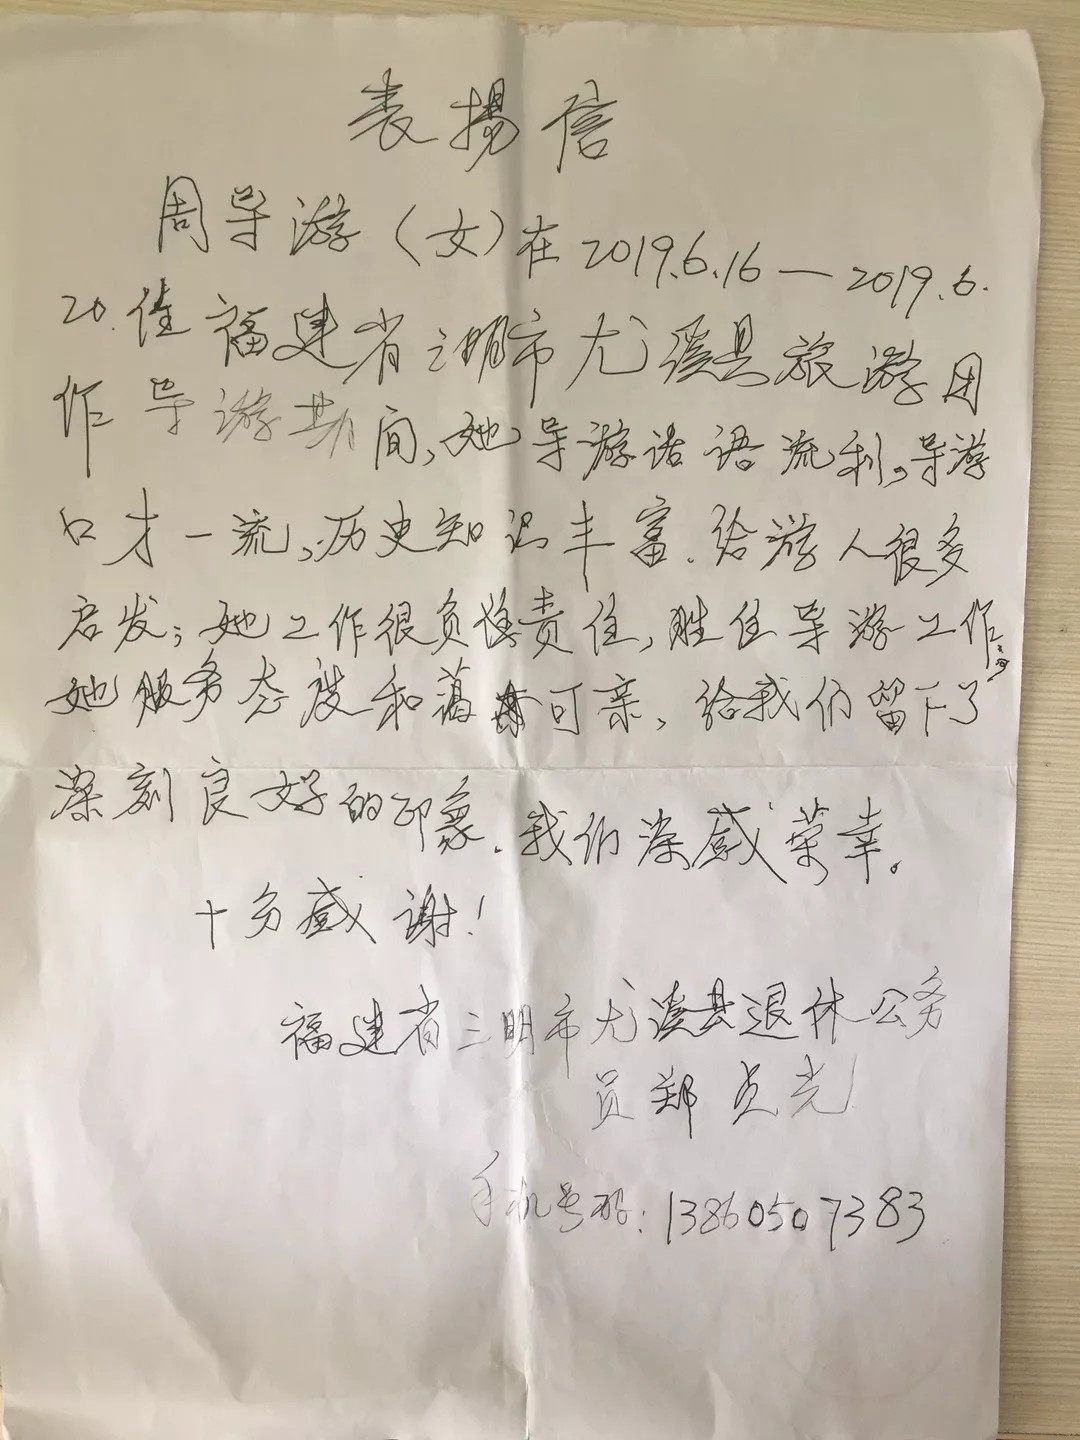 表揚信
周导游（女）在2019.6.16—2019.6.
20.佳福建省三明市尤溪县旅游团
作导游期间，她导游话语流利。导游
口才一流，历史知识丰富．给游人很多
启发；她工作很负责任，胜任导游工作。
她服务态度和蔼可亲，给我们留下了
深刻良好的印象．我们深感荣幸。
十分感谢！
福建省三明市尤溪县退休公务
员郑贞光
手机号码：13860507383